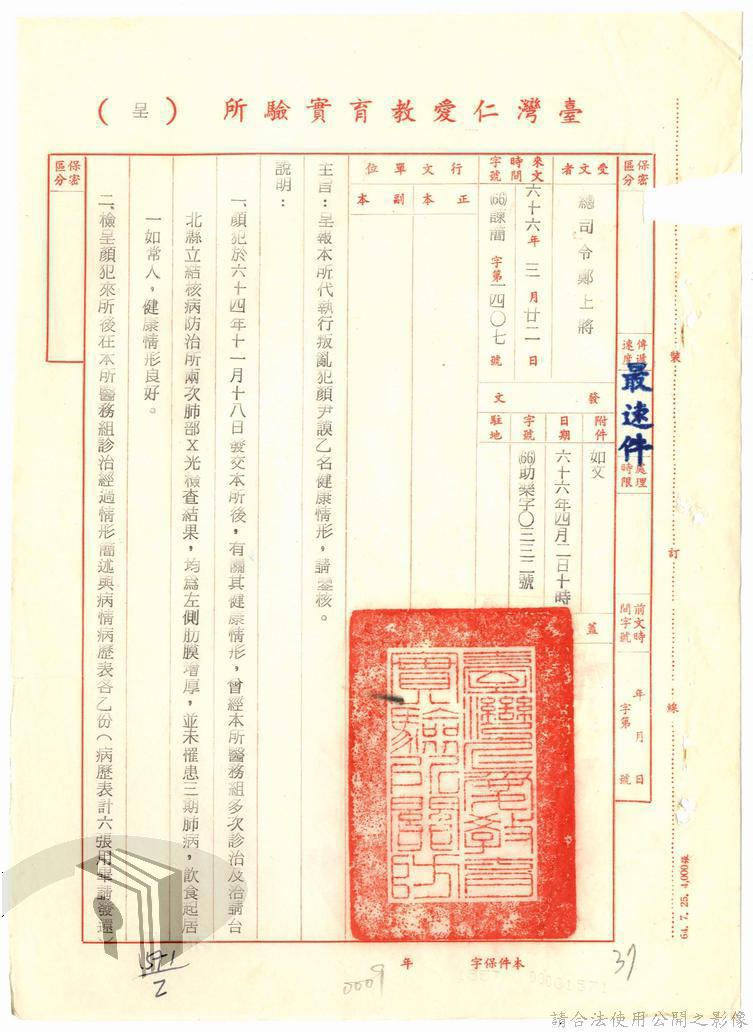 臺灣仁愛教育實驗所（呈）
保密區分
傳遞速度
最速件
處理時限
前文時間字號
年 月 日
字第 號
受文者
總司令鄭上將
來文時間字號
六十六年三月廿二日
(66)諫簡字第一四〇七號
行文單位
正本
副本
發文
附件
如文
日期
六十六年四月二日十時
字號
(66)助樂字〇三三二號
駐地
蓋
臺灣仁愛教育實驗所關防
保密區分
主旨：呈報本所代執行叛亂犯顏尹謨乙名健康情形，請鑒核。
說明：
一、顏犯於六十四年十一月十八日發交本所後，有關其健康情形，曾經本所醫務組多次診治及洽請台
北縣立結核病防治所兩次肺部X光檢查結果，均為左側肋膜增厚，並未罹患三期肺病，飲食起居
一如常人，健康情形良好。
二、檢呈顏犯來所後在本所醫務組診治經過情形簡述與病情病歷表各乙份（病歷表計六張用畢請發還
裝
訂
線
64. 7. 25. 4,000張
本件保字 年
37
0009
00001571
1571/2
請合法使用公開之影像